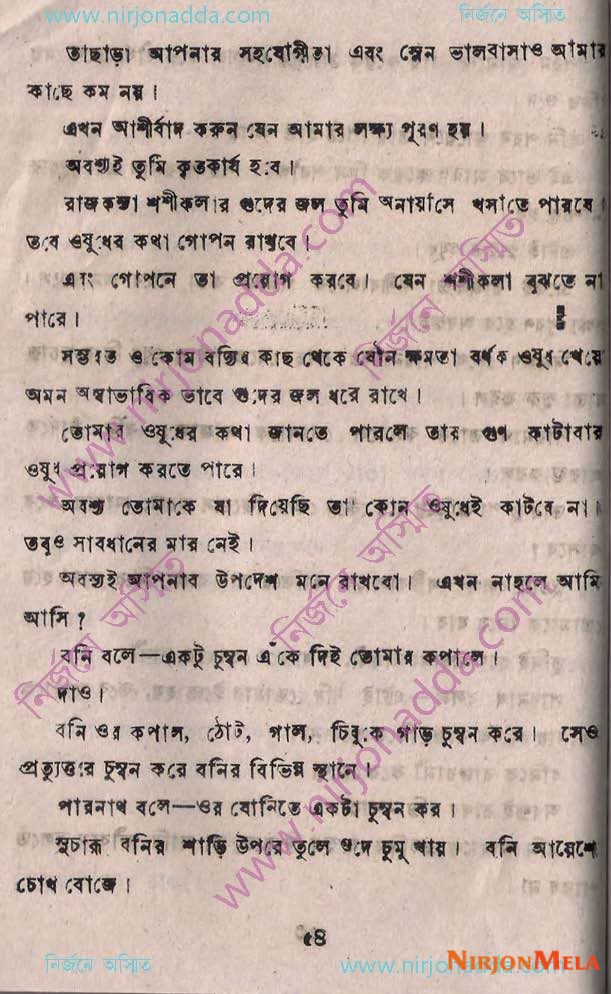 www.nirjonadda.com নির্জনে অস্মিত
তাছাড়া আপনার সহযোগীতা এবং স্নেন ভালবাসাও আমার
কাছে কম নয়।
এখন আশীর্বাদ করুন যেন আমার লক্ষ্য পূরণ হয়।
অবশ্যই তুমি কৃতকার্য হবে।
রাজকন্তা শশীকলার গুদের জল তুমি অনায়াসে খসাতে পারবে।
তবে ওষুধের কথা গোপন রাখবে।
এবং গোপনে তা প্রয়োগ করবে। যেন শশীকলা বুঝতে না
পারে।
সম্ভবত ও কোম বদ্যির কাছ থেকে যৌন ক্ষমতা বর্ধক ওষুধ খেয়ে
অমন অস্বাভাবিক ভাবে গুদের জল ধরে রাখে।
তোমার ওষুধের কথা জানতে পারলে তার গুণ কাটাবার
ওষুধ প্রয়োগ করতে পারে।
অবশ্য তোমাকে যা দিয়েছি তা কোন ওষুধেই কাটবে না।
তবুও সাবধানের মার নেই।
অবশ্যই আপনাব উপদেশ মনে রাখবো। এখন নাহলে আমি
আসি ?
বনি বলে—একটু চুম্বন এঁকে দিই তোমার কপালে।
দাও।
বনি ওর কপাল, ঠোট, গাল, চিবুকে গাড় চুম্বন করে। সেও
প্রত্যুত্তরে চুম্বন করে বনির বিভিন্ন স্থানে।
পারনাথ বলে—ওর যোনিতে একটা চুম্বন কর।
সুচারু বনির শাড়ি উপরে তুলে গুদে চুমু খায়। বনি আয়েশে
চোখ বোজে।
৫৪
নির্জনে অস্মিত www.nirjonadda.com NIRJONMELA
www.nirjonadda.com নির্জনে অস্মিত
নির্জনে অস্মিত নির্জনে অস্মিত www.nirjonadda.com